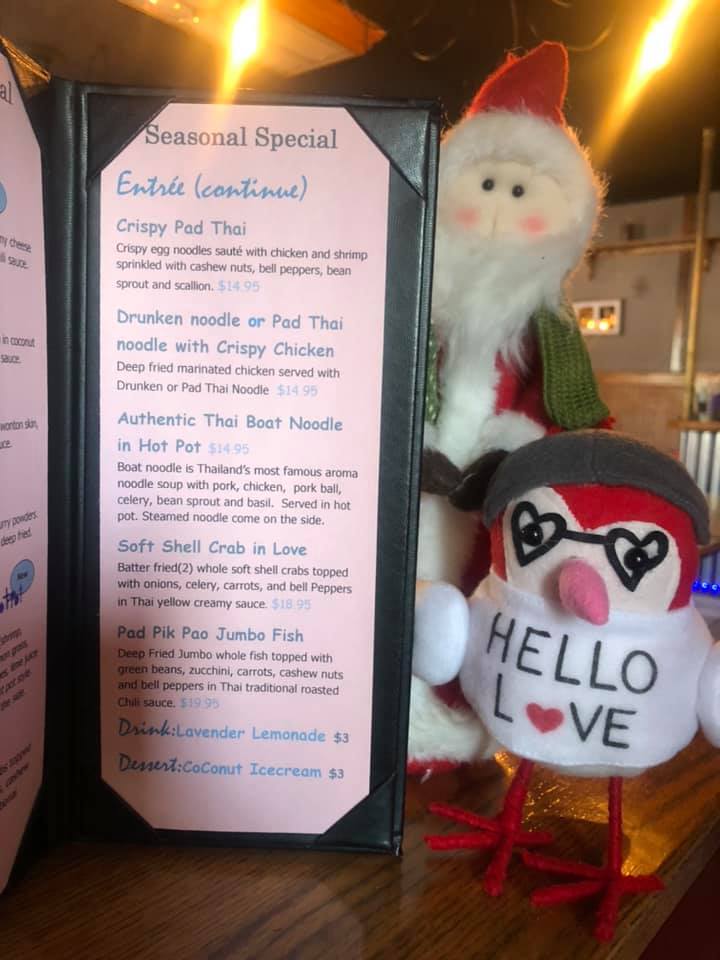 Seasonal Special
Entrée (continue)
Crispy Pad Thai
Crispy egg noodles sauté with chicken and shrimp
sprinkled with cashew nuts, bell peppers, bean
sprout and scallion. $14.95
Drunken noodle or Pad Thai
noodle with Crispy Chicken
Deep fried marinated chicken served with
Drunken or Pad Thai Noodle $14.95
Authentic Thai Boat Noodle
in Hot Pot $14.95
Boat noodle is Thailand's most famous aroma
noodle soup with pork, chicken, pork ball,
celery, bean sprout and basil. Served in hot
pot. Steamed noodle come on the side.
Soft Shell Crab in Love
Batter fried(2) whole soft shell crabs topped
with onions, celery, carrots, and bell Peppers
in Thai yellow creamy sauce. $18.95
Pad Pik Pao Jumbo Fish
Deep Fried Jumbo whole fish topped with
green beans, zucchini, carrots, cashew nuts
and bell peppers in Thai traditional roasted
Chili sauce. $19.95
Drink:Lavender Lemonade $3
Dessert:CoConut Icecream $3
cheese
sauce.
in coconut
sauce.
wonton skin,
powders.
deep fried.
New
juice
pot style.
the side.
topped
cashew
HELLO
L♥VE